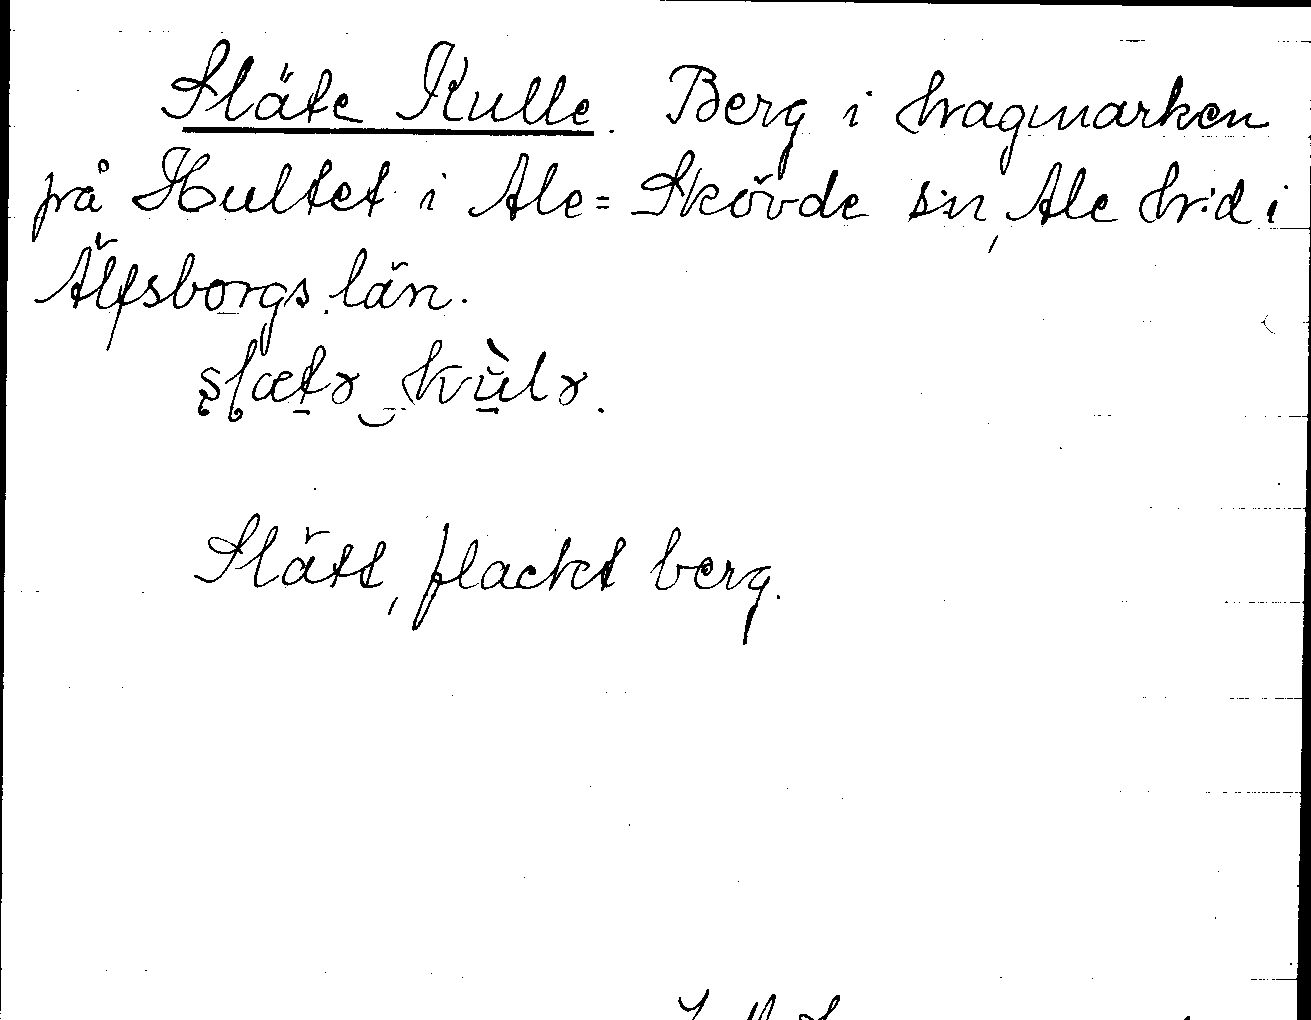 Släte Kulle. Berg i hagmarken
på Hultet i Ale-Skövde sn, Ale hrd i
Älfsborgs län.
Slätt, flackt berg.